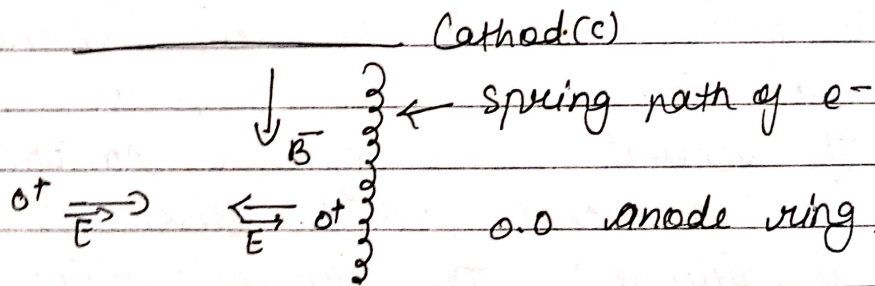 Cathod.(c)
← spring path of e-
B
o+ E E o+ o.o anode ring